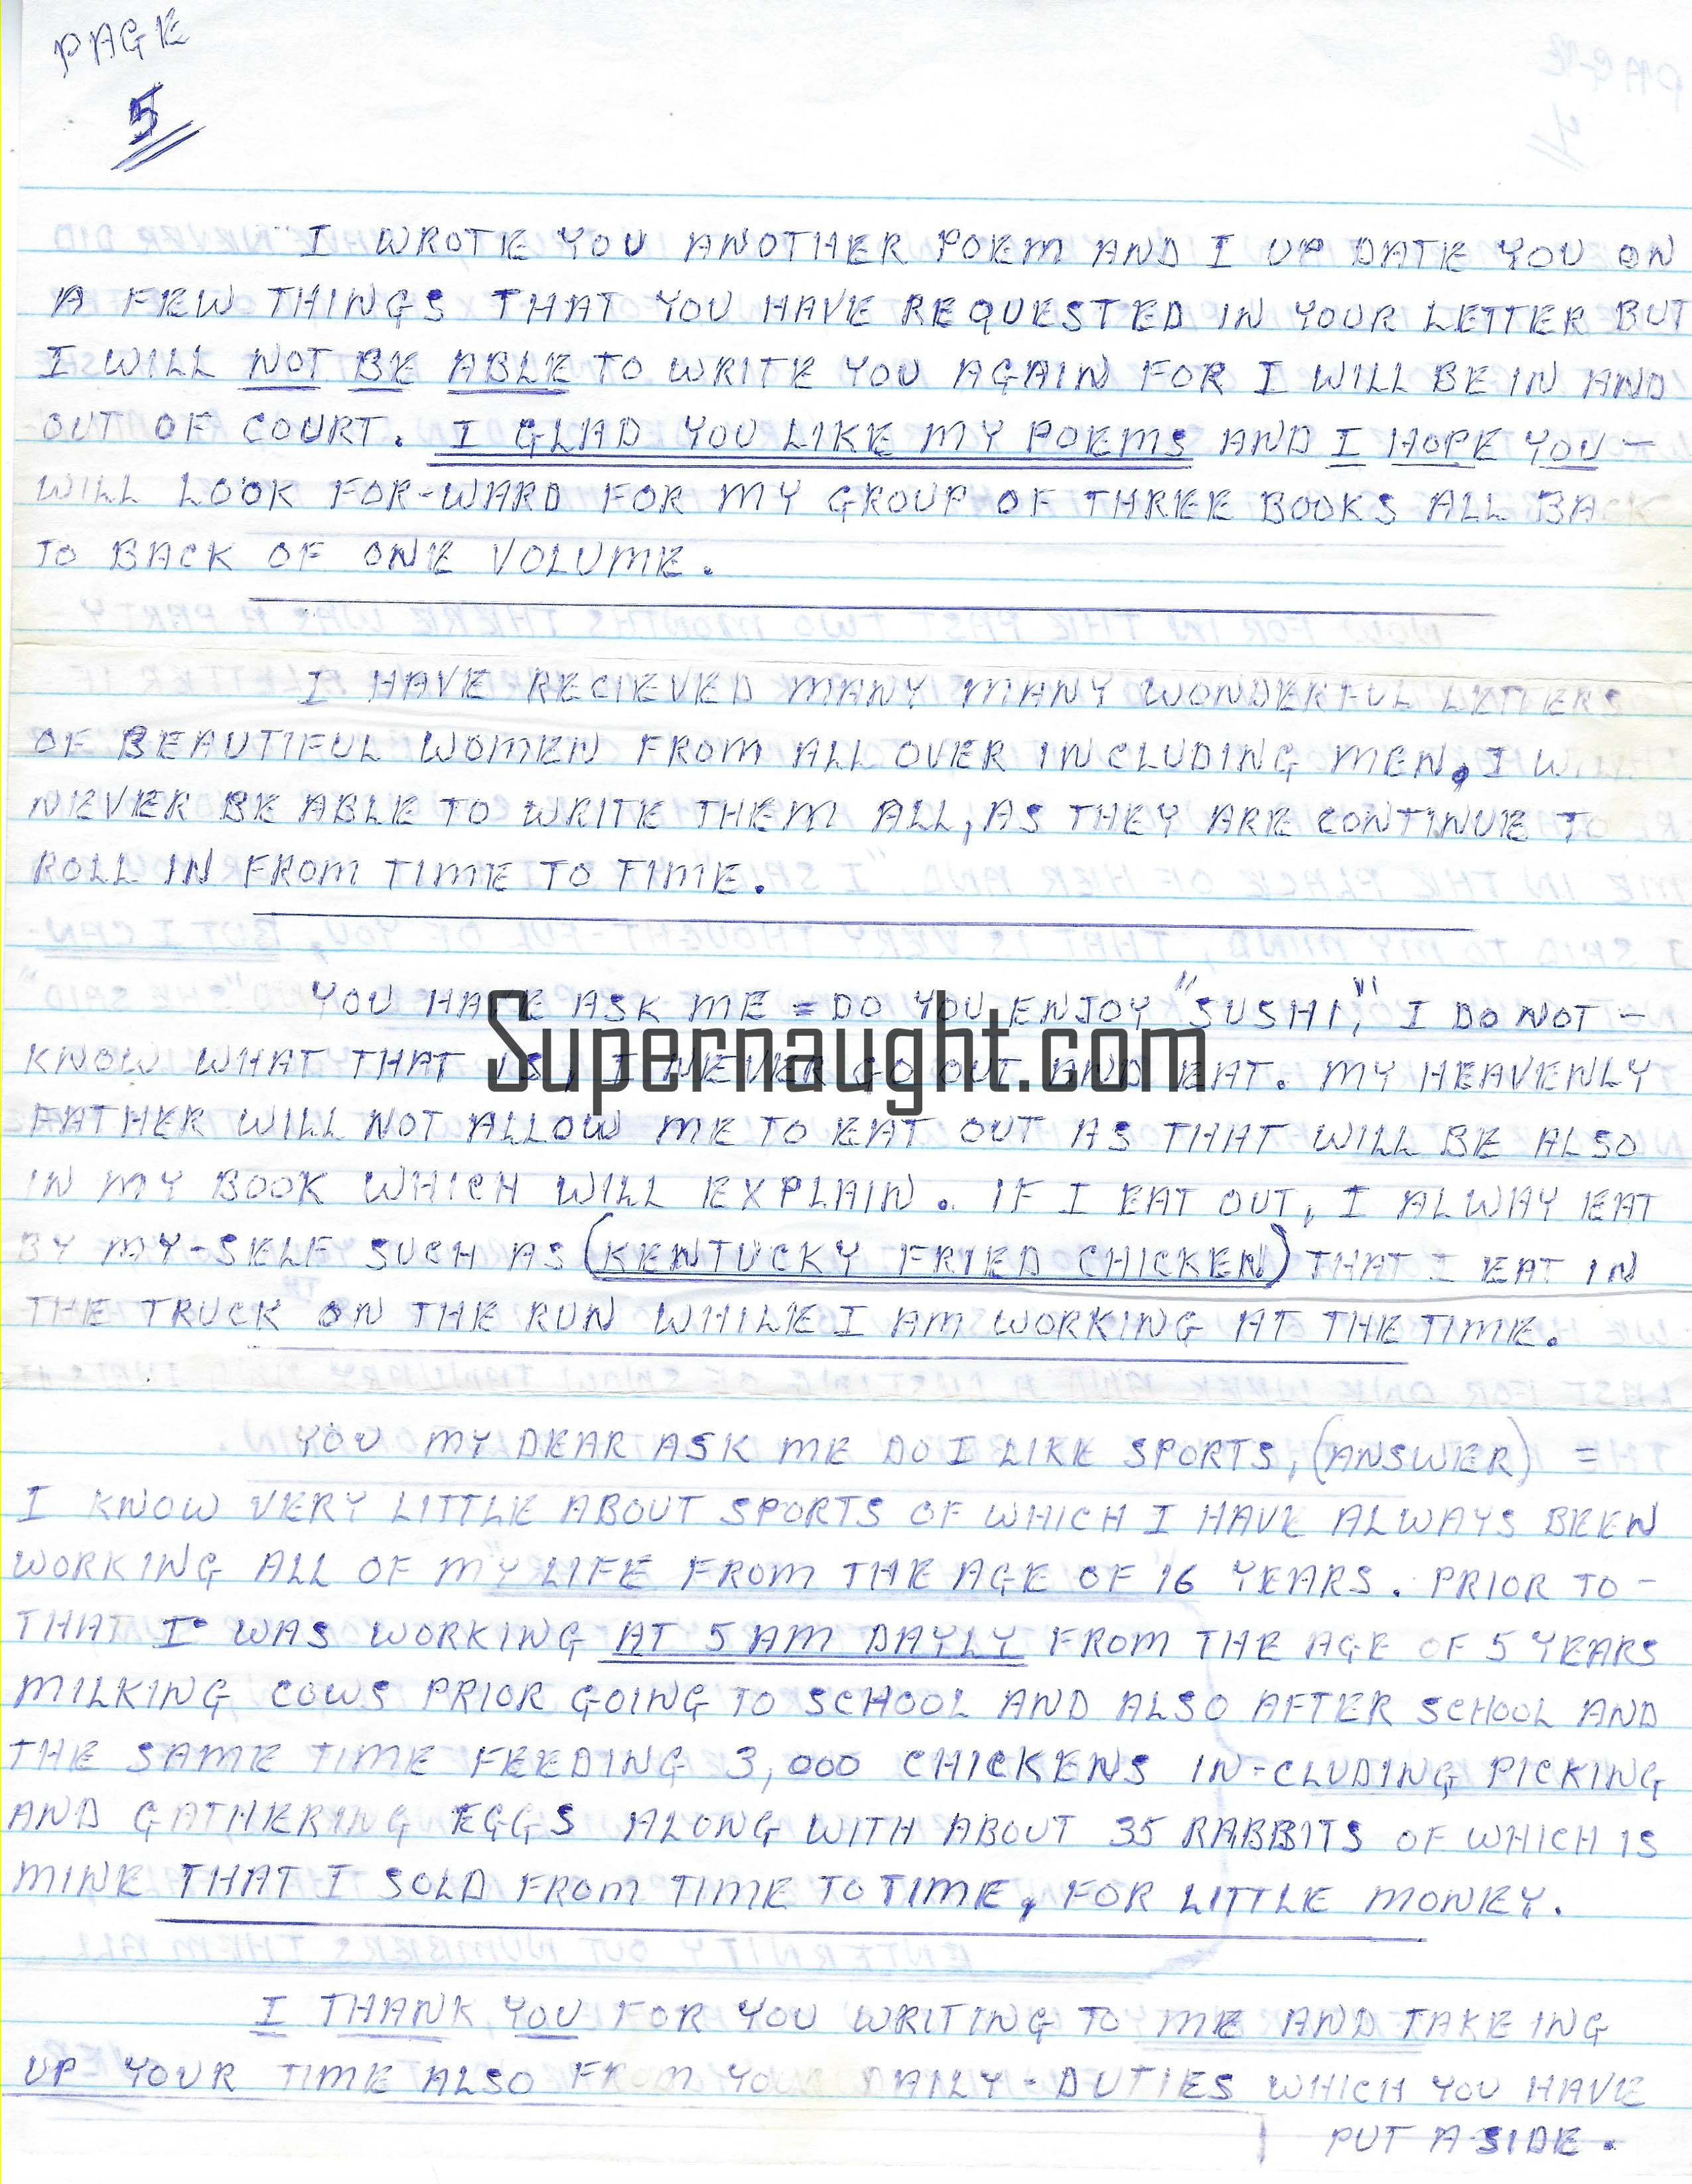 PAGE
5
I WROTE YOU ANOTHER POEM AND I UP DATE YOU ON
A FEW THINGS THAT YOU HAVE REQUESTED IN YOUR LETTER BUT
I WILL NOT BE ABLE TO WRITE YOU AGAIN FOR I WILL BE IN AND
OUT OF COURT. I GLAD YOU LIKE MY POEMS AND I HOPE YOU -
WILL LOOK FOR-WARD FOR MY GROUP OF THREE BOOKS ALL BACK
TO BACK OF ONE VOLUME.
I HAVE RECIEVED MANY MANY WONDERFUL LETTERS
OF BEAUTIFUL WOMEN FROM ALL OVER INCLUDING MEN, I
NEVER BE ABLE TO WRITE THEM ALL, AS THEY ARE CONTINUE TO
ROLL IN FROM TIME TO TIME.
YOU HAVE ASK ME = DO YOU ENJOY "SUSHI," I DO NOT -
KNOW WHAT THAT IS, I NEVER GO OUT AND EAT. MY HEAVENLY
FATHER WILL NOT ALLOW ME TO EAT OUT AS THAT WILL BE ALSO
IN MY BOOK WHICH WILL EXPLAIN. IF I EAT OUT, I ALWAY EAT
BY MY-SELF SUCH AS (KENTUCKY FRIED CHICKEN) THAT I EAT IN
THE TRUCK ON THE RUN WHILE I AM WORKING AT THE TIME.
YOU MY DEAR ASK ME DO I LIKE SPORTS, (ANSWER) =
I KNOW VERY LITTLE ABOUT SPORTS OF WHICH I HAVE ALWAYS BEEN
WORKING ALL OF MY LIFE FROM THE AGE OF 16 YEARS. PRIOR TO -
THAT I WAS WORKING AT 5 AM DAYLY FROM THE AGE OF 5 YEARS
MILKING COWS PRIOR GOING TO SCHOOL AND ALSO AFTER SCHOOL AND
THE SAME TIME FEEDING 3,000 CHICKENS IN-CLUDING PICKING
AND GATHERING EGGS ALONG WITH ABOUT 35 RABBITS OF WHICH IS
MINE THAT I SOLD FROM TIME TO TIME, FOR LITTLE MONEY.
I THANK YOU FOR YOU WRITING TO ME AND TAKEING
UP YOUR TIME ALSO FROM YOUR DAILY-DUTIES WHICH YOU HAVE
PUT A SIDE.
Supernaught.com